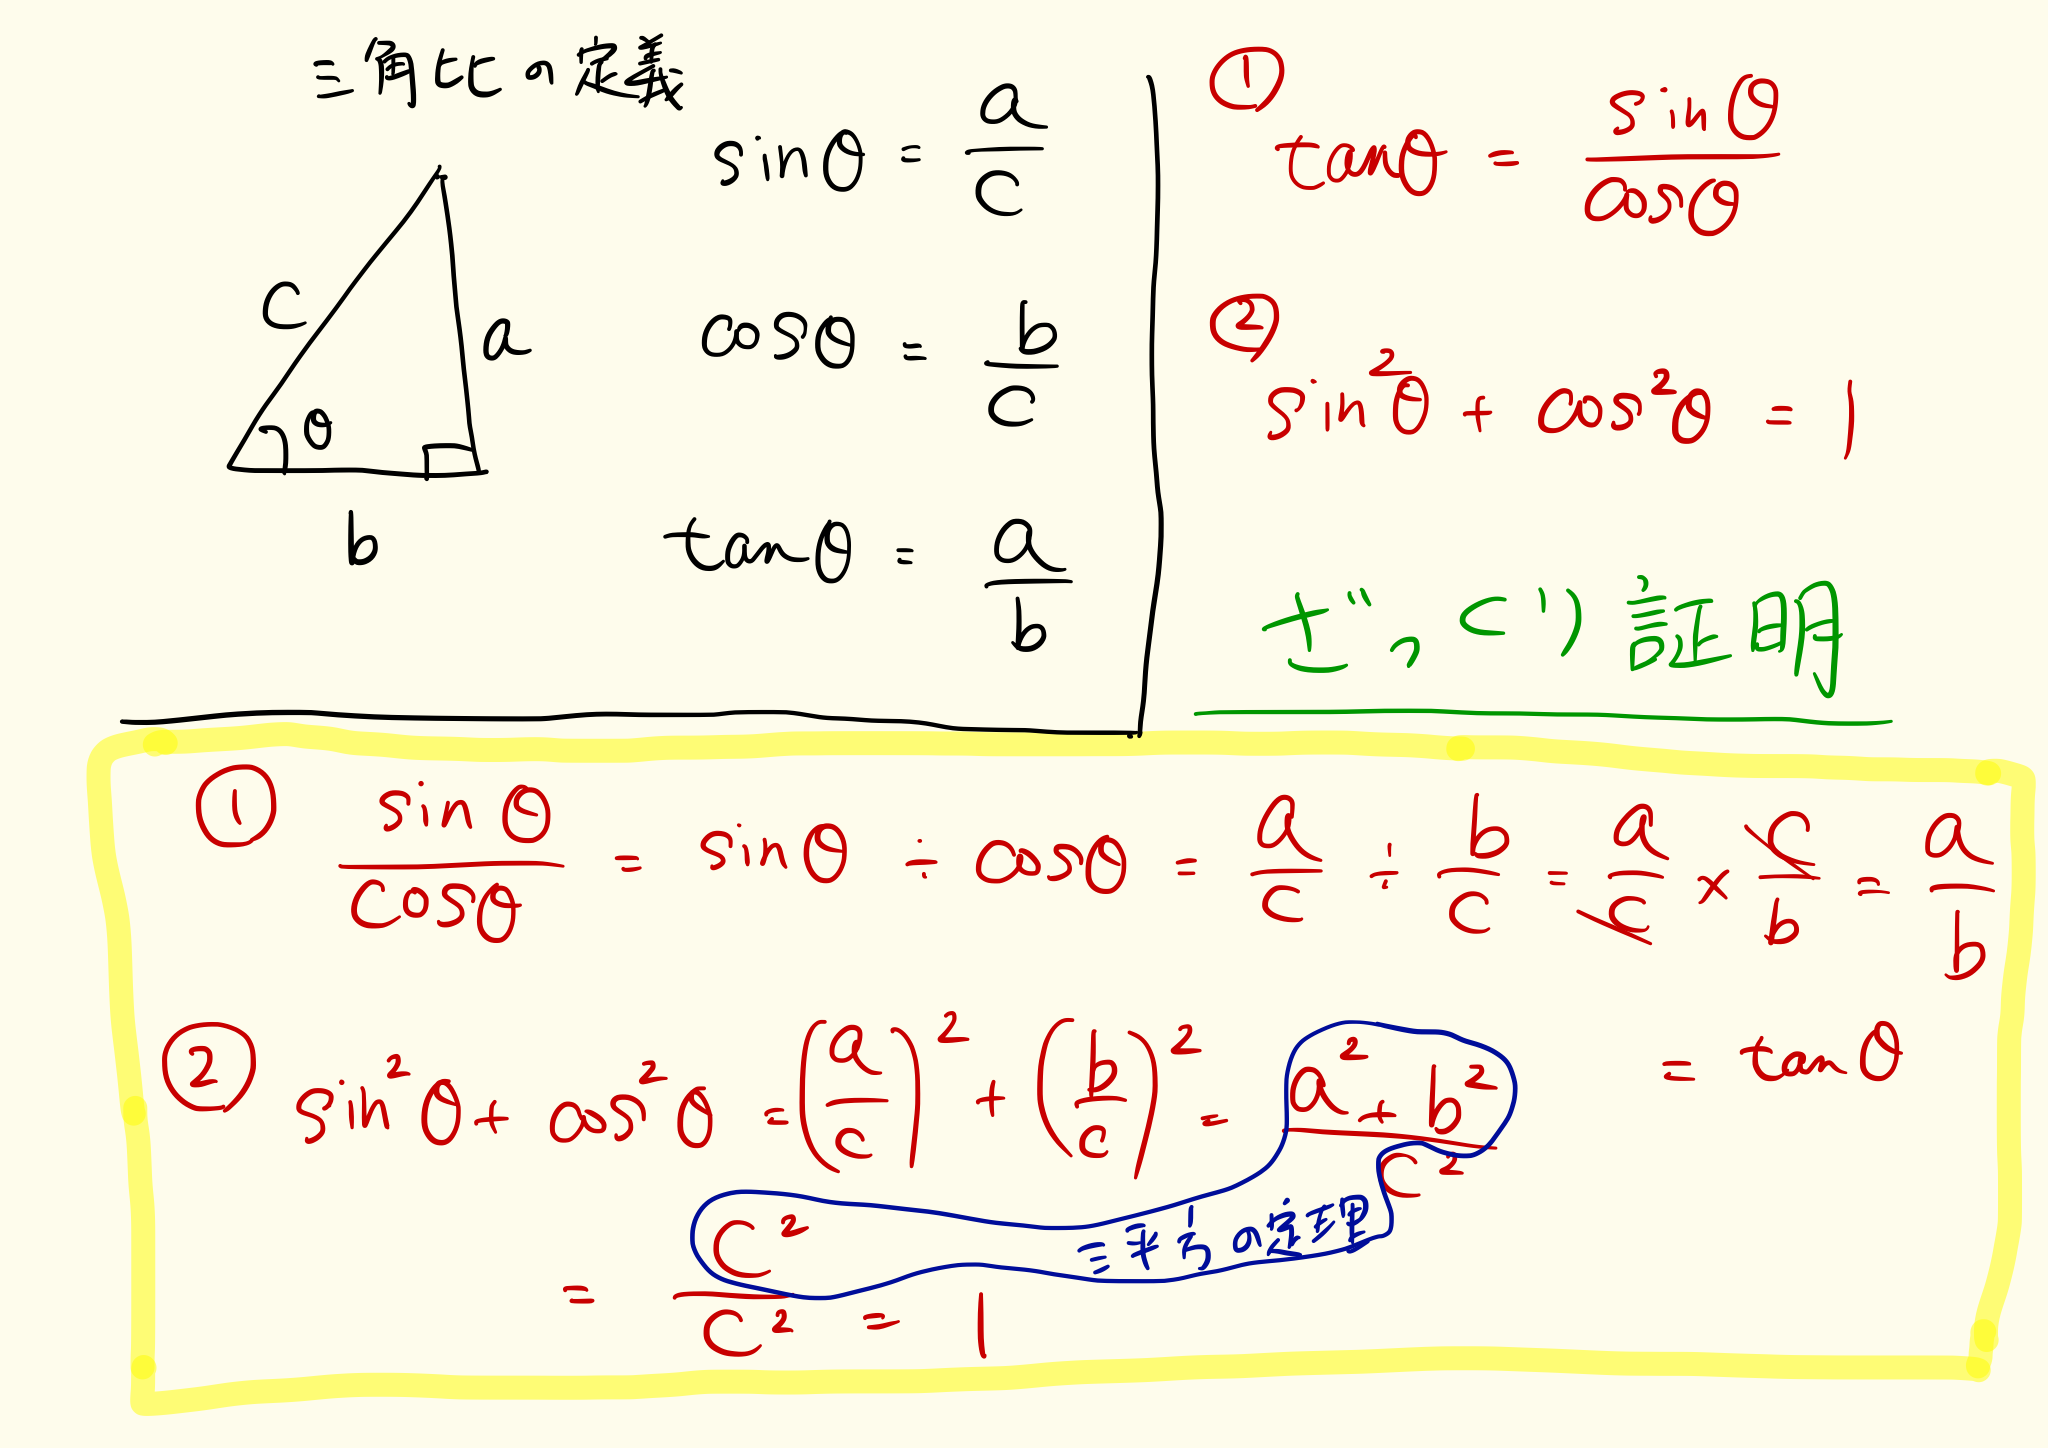 三角比の定義
sinθ = a/c
cosθ = b/c
tanθ = a/b
c
a
θ
b
①
tanθ = sinθ/cosθ
②
sin²θ + cos²θ = 1
ざっくり証明
① sinθ/cosθ = sinθ ÷ cosθ = a/c ÷ b/c = a/c × c/b = a/b
= tanθ
② sin²θ + cos²θ = (a/c)² + (b/c)² = a² + b²/c²
三平方の定理
= c²/c² = 1